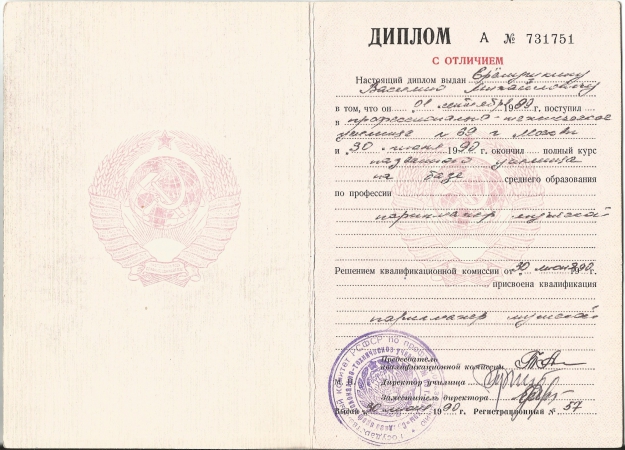 ДИПЛОМ А № 731751
С ОТЛИЧИЕМ
Настоящий диплом выдан
Василию Михайловичу
в том, что он 01 сентября 1990 г. поступил
в профессионально-техническое
училище № 69 г Москвы
и 30 июня 1990 г. окончил полный курс
названного училища
на базе среднего образования
по профессии
парикмахер мужской
Решением квалификационной комиссии от 30 июня 1990 г.
, присвоена квалификация
парикмахер мужской
Председатель
квалификационной комиссии
М. П. Директор училища
Заместитель директора
Выдан 30 июня 1990 г. Регистрационный № 57